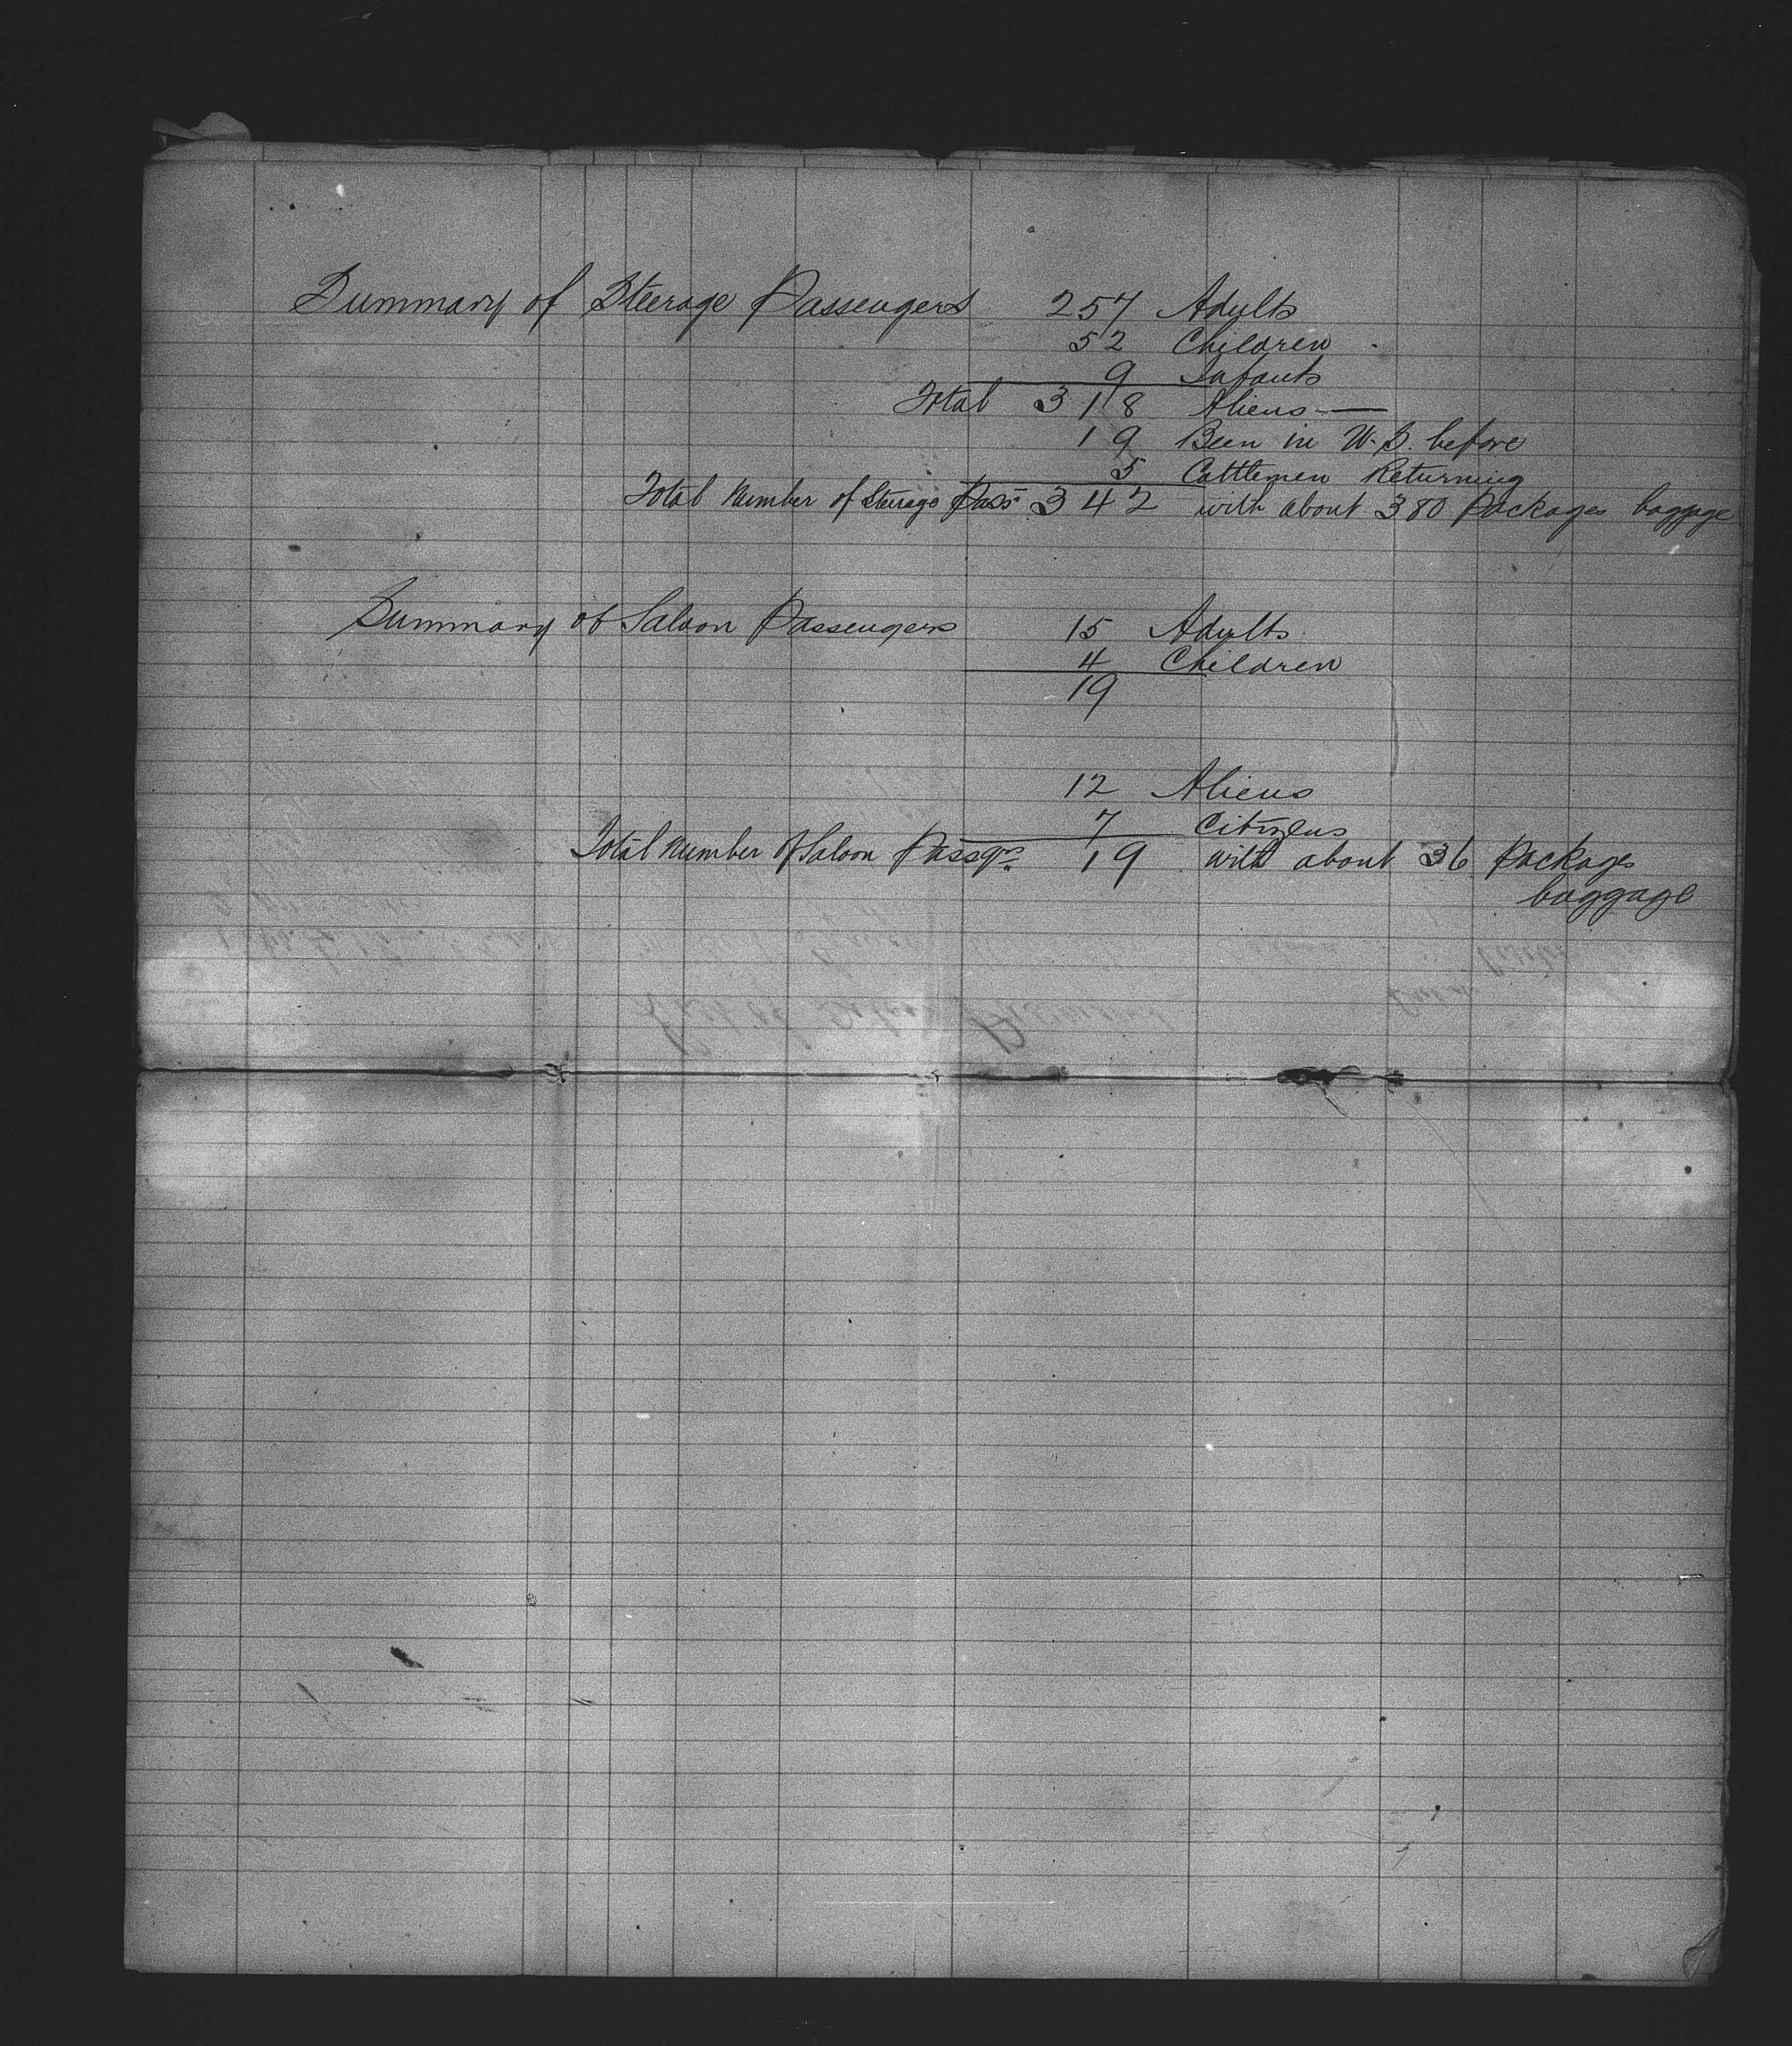 Summary of Steerage Passengers 257 Adults
52 Children
9 Infants
Total 318 Aliens —
19 Been in U.S. before
5 Cattlemen Returning
Total Number of Steerage Pass 342 with about 380 Packages baggage
Summary of Saloon Passengers 15 Adults
4 Children
19
12 Aliens
7 Citizens
Total Number of Saloon Passgrs. 19 with about 36 packages
baggage